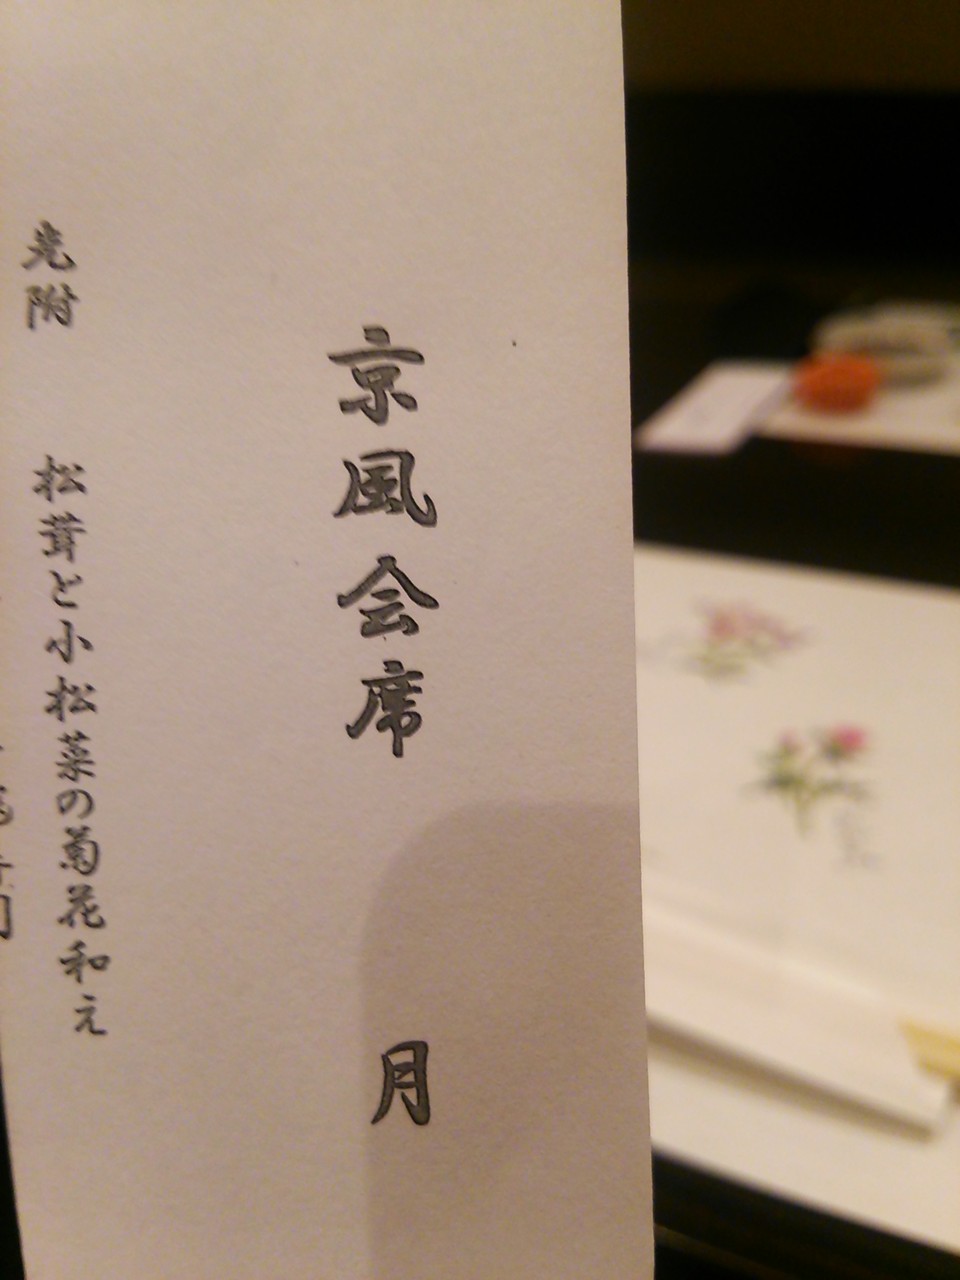 京風会席 月
先附 松茸と小松菜の菊花和え